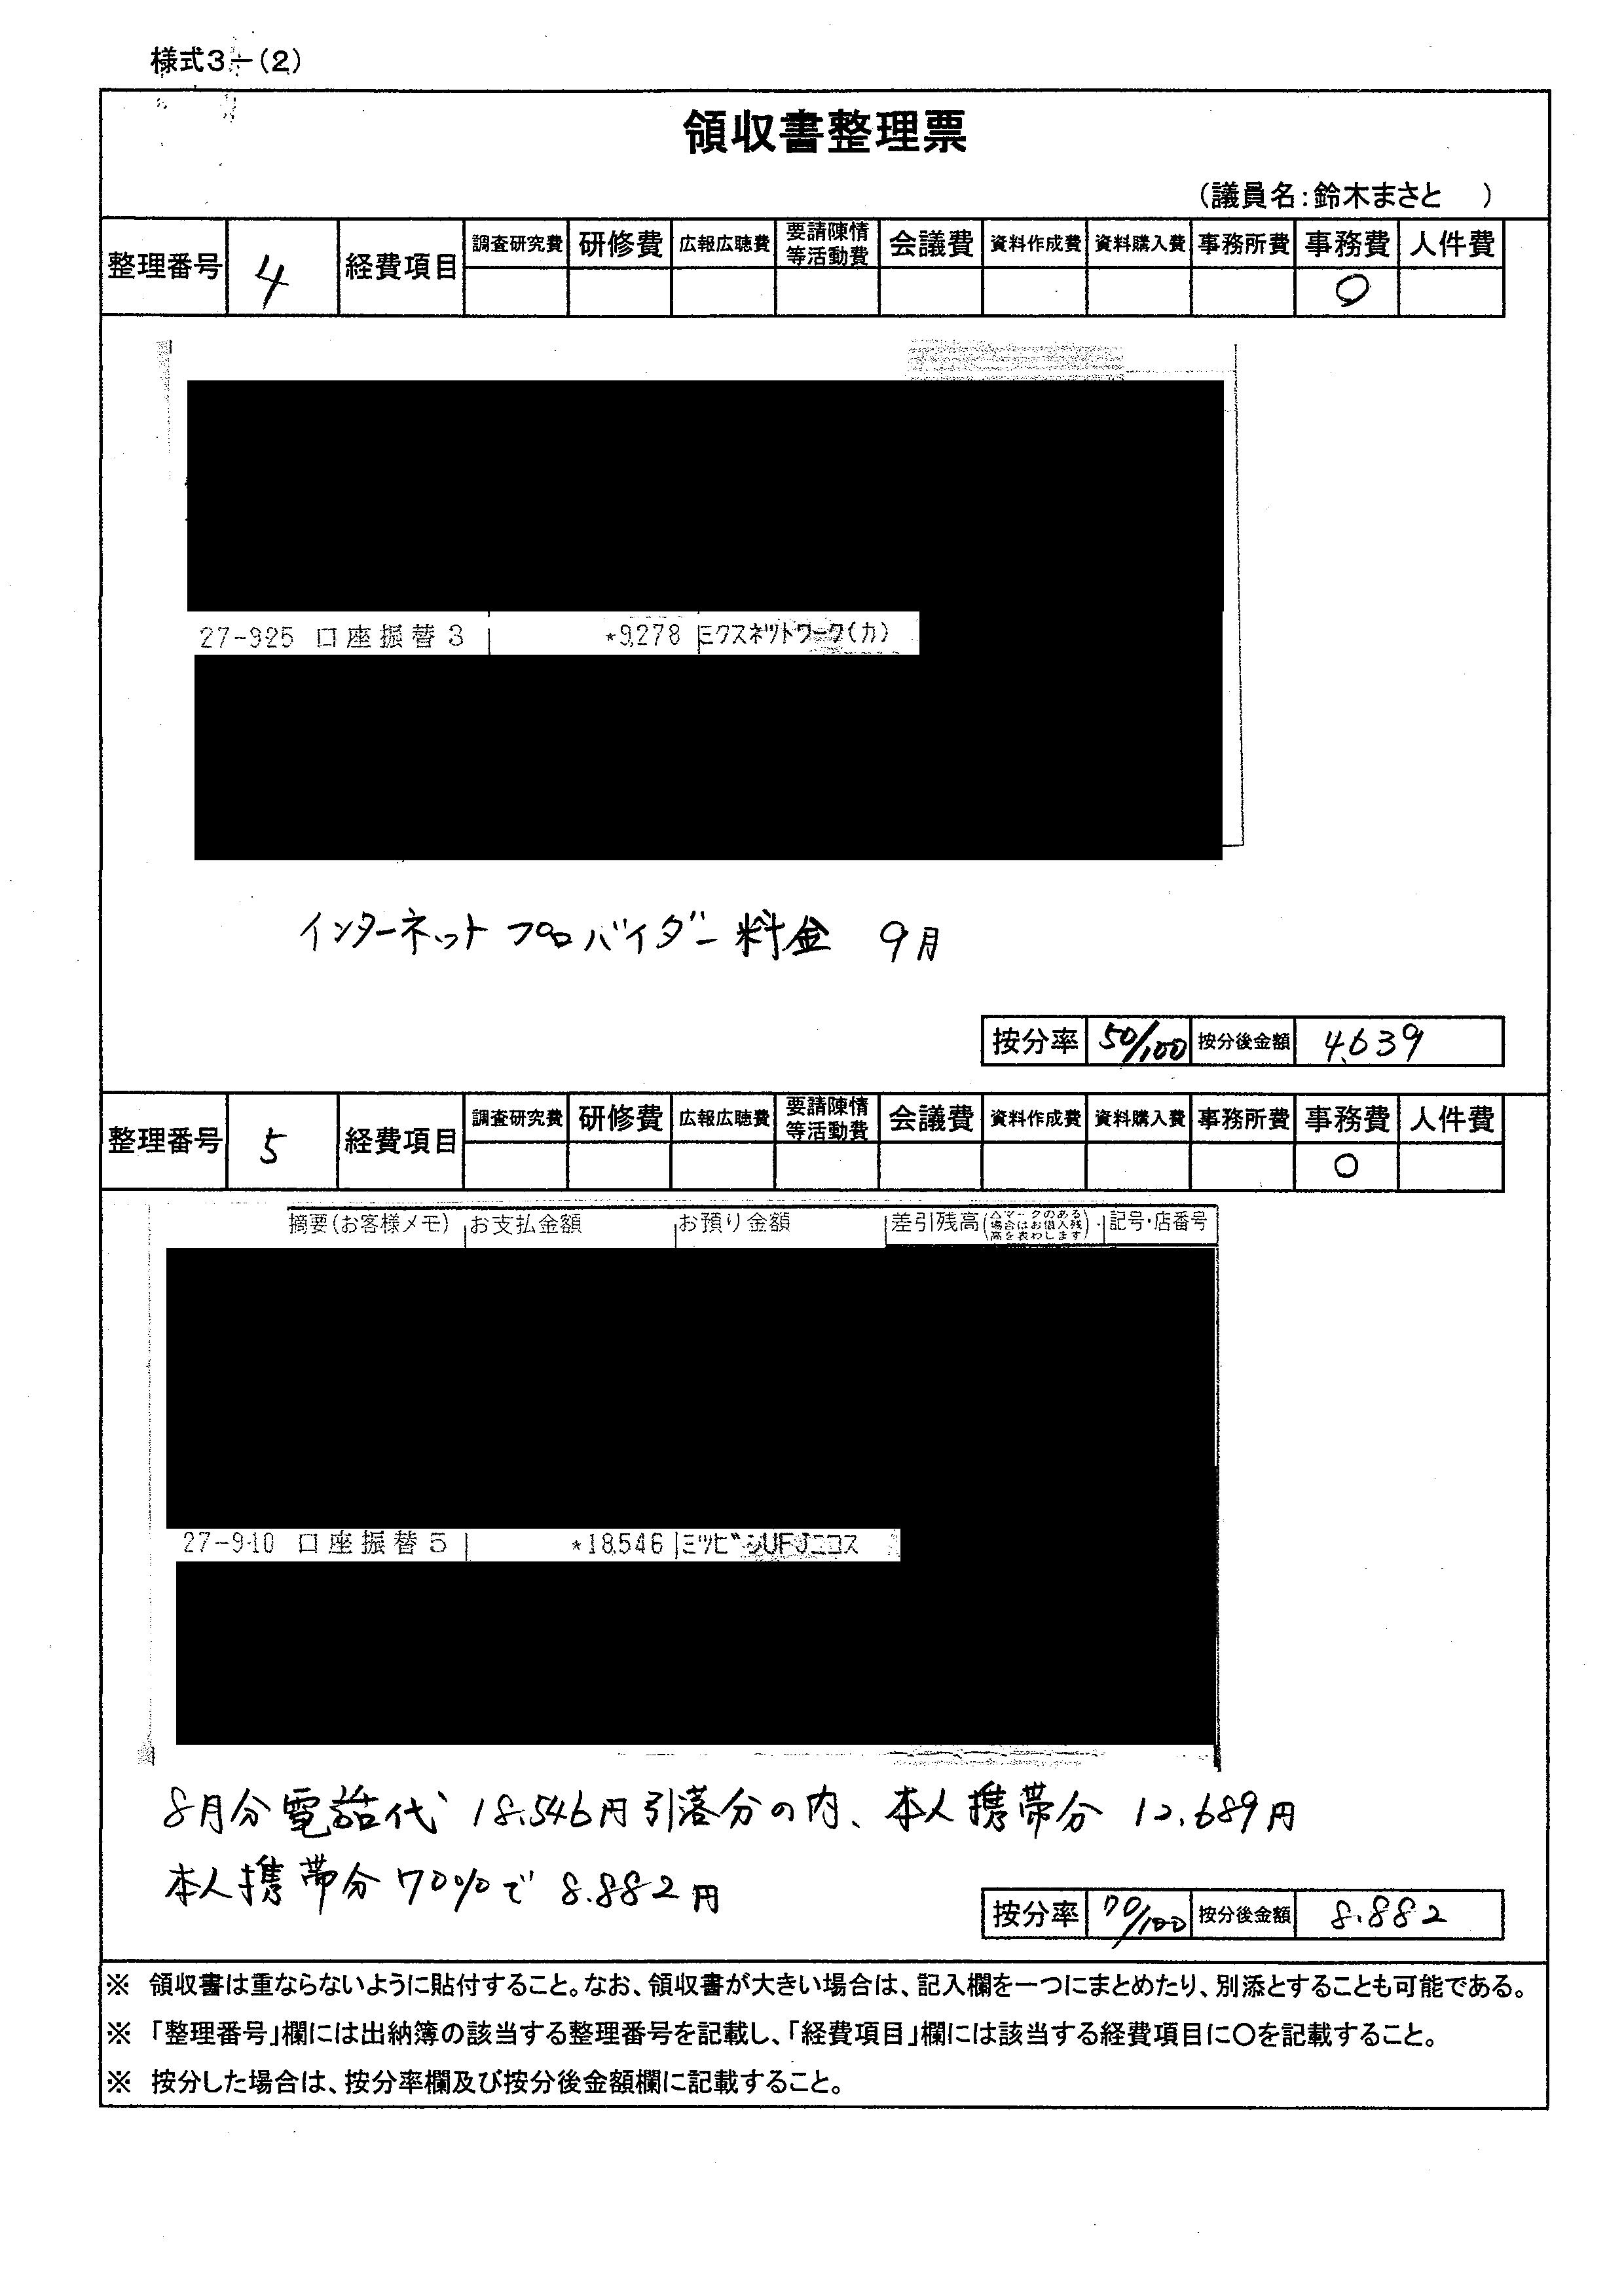 様式3-(2)
領収書整理票
(議員名:鈴木まさと )
整理番号 4 経費項目 調査研究費 研修費 広報広聴費 要請陳情等活動費 会議費 資料作成費 資料購入費 事務所費 事務費 人件費
○
27-925 口座振替3 *9,278 ミクスネツトワーク(カ)
インターネットプロバイダー料金 9月
按分率 50/100 按分後金額 4,639
整理番号 5 経費項目 調査研究費 研修費 広報広聴費 要請陳情等活動費 会議費 資料作成費 資料購入費 事務所費 事務費 人件費
○
摘要(お客様メモ) お支払金額 お預り金額 差引残高 記号・店番号
27-910 口座振替5 *18,546 ミツビシUFJニコス
8月分電話代 18,546円引落分の内、本人携帯分 12,689円
本人携帯分70%で 8,882円
按分率 70/100 按分後金額 8,882
※ 領収書は重ならないように貼付すること。なお、領収書が大きい場合は、記入欄を一つにまとめたり、別添とすることも可能である。
※ 「整理番号」欄には出納簿の該当する整理番号を記載し、「経費項目」欄には該当する経費項目に○を記載すること。
※ 按分した場合は、按分率欄及び按分後金額欄に記載すること。